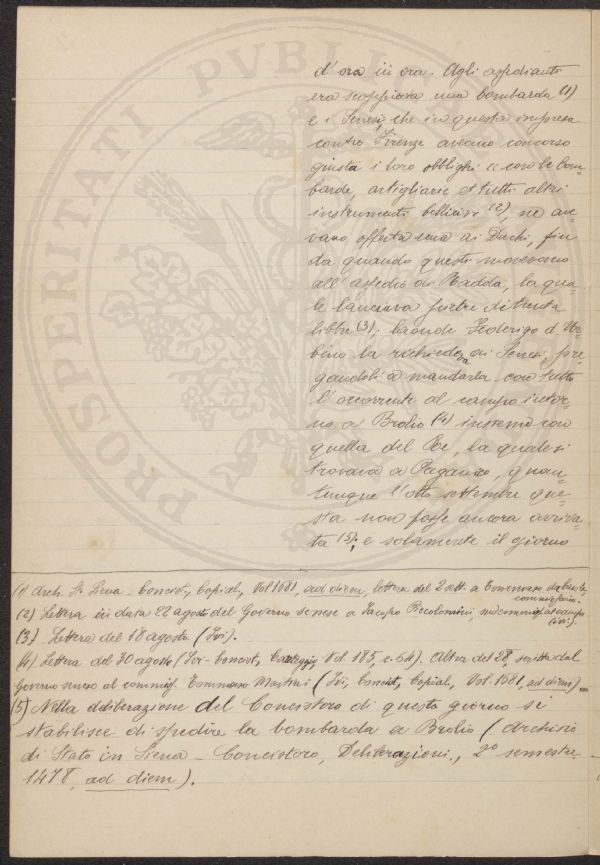 PROSPERITATI PVBLI
d'ora in ora. Agli assedianti
era scoppiata una bombarda (1)
e i Senesi, che in questa impresa
contro Firenze aveano concorso
giusta i loro obblighi "con le bom=
barde, artigliarie et tutti altri
instrumenti bellicosi (2), ne ave
vano offerta una ai Duchi, fin
da quando questi movevano
all'assedio di Radda, la qua=
le lanciava pietre di trenta
libbre (3); laonde Federigo d'Ur=
bino la richiedeva ai Senesi, pre
gandoli a mandarla con tutto
l'occorrente al campo intor=
no a Brolio (4) insieme con
quella del Re, la quale si
trovava a Paganico, quan=
tunque l'otto settembre que=
sta non fosse ancora arriva=
ta (5); e solamente il giorno
(1) Arch. St. Siena - Concist., Copial., Vol 1681, ad diem, lettera del 2 sett. a Tommaso
commissario.
(2) Lettera in data 22 agosto del Governo senese a Jacopo Piccolomini, suo commis. al campo
(ivi).
(3) Lettera del 18 agosto (Ivi).
(4) Lettera del 30 agosto (Ivi - Concist., Carteggio, Vol. 185, c. 64). Altra del 28, scritta dal
Governo senese al commis. Tommaso Martini (Ivi, Concist., Copial., Vol. 1681, ad diem).
(5) Nella deliberazione del Concistoro di questo giorno si
stabilisce di spedire la bombarda a Brolio (Archivio
di Stato in Siena - Concistoro, Deliberazioni., 2º semestre
1478, ad diem).